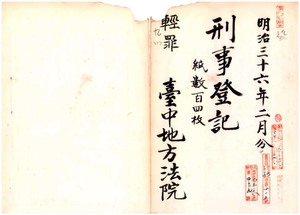 明治三十六年二月分
刑事登記
紙數百四枚
輕罪
臺中地方法院